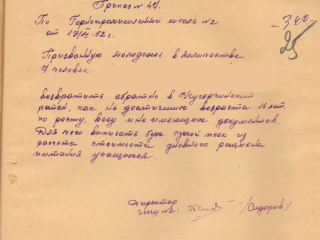 Приказ № 47.
По Горнопромышленной школе №2
от 19/IX-52г.
Призванную молодежь в количестве
7 человек
возвратить обратно в Кугарчинский
район, как не достигших возраста 16 лет
по росту, весу и не имеющих документов.
Для чего выписать бух. сухой паек из
расчета стоимости дневного рациона
питания учащихся.
-340-
25
Директор
гпш №2:
/Сидоров/